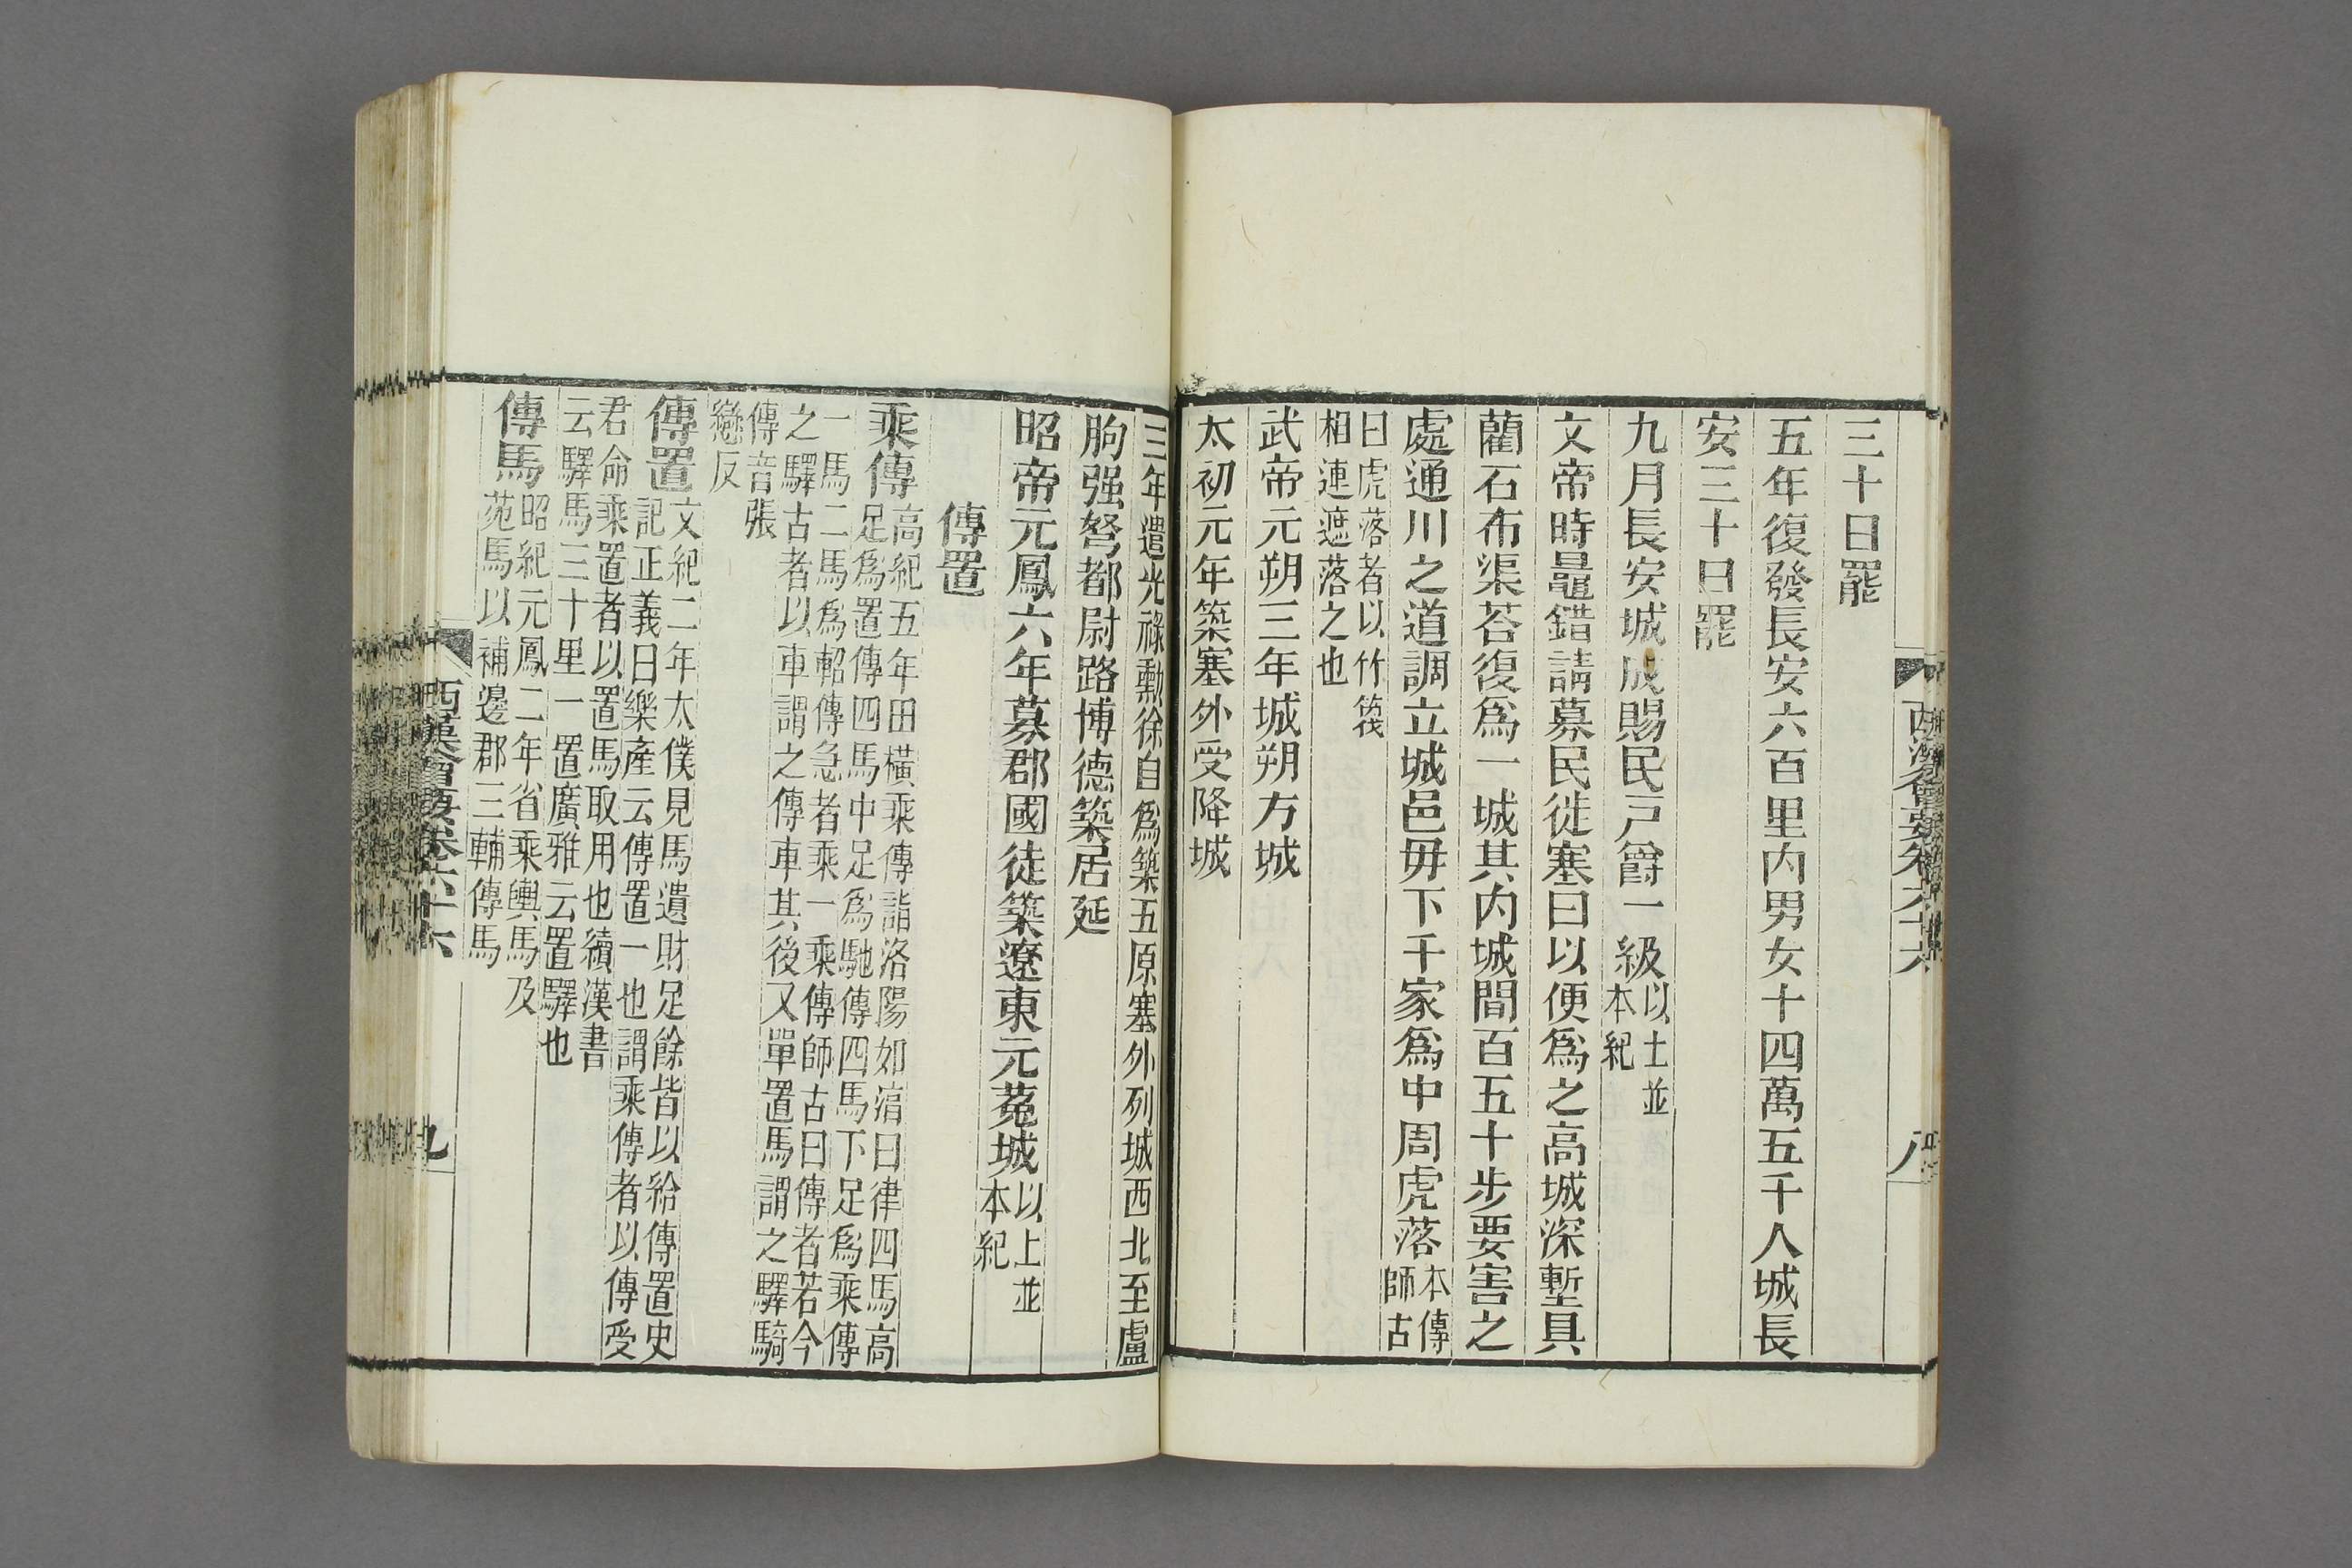 三十日罷
五年復發長安六百里内男女十四萬五千人城長
安三十日罷
九月長安城成賜民戸爵一級以上並
本紀
文帝時鼂錯請募民徙塞曰以便爲之高城深塹具
藺石布渠荅復爲一城其内城間百五十步要害之
處通川之道調立城邑毋下千家爲中周虎落本傳
師古
曰虎落者以竹篾
相連遮落之也
武帝元朔三年城朔方城
太初元年築塞外受降城
三年遣光祿勳徐自爲築五原塞外列城西北至盧
朐强弩都尉路博德築居延
昭帝元鳳六年募郡國徒築遼東元菟城以上並
本紀
傳置
乘傳高紀五年田橫乘傳詣洛陽如淳曰律四馬高
足爲置傳四馬中足爲馳傳四馬下足爲乘傳
一馬二馬爲軺傳急者乘一乘傳師古曰傳者若今
之驛古者以車謂之傳車其後又單置馬謂之驛騎
傳音張
戀反
傳置文紀二年太僕見馬遺財足餘皆以給傳置史
記正義曰樂產云傳置一也謂乘傳者以傳受
君命乘置者以置馬取用也續漢書
云驛馬三十里一置廣雅云置驛也
傳馬昭紀元鳳二年省乘輿馬及
苑馬以補邊郡三輔傳馬
西漢會要卷六十六
九